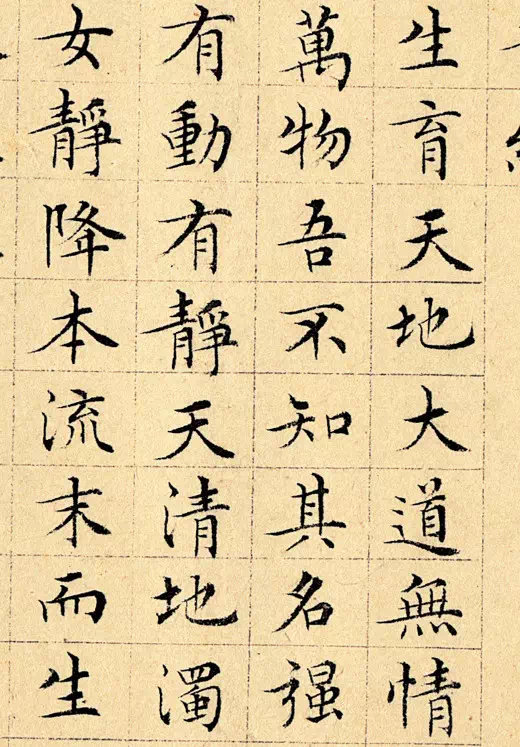 生育天地大道無情
萬物吾不知其名强
有動有靜天清地濁
女靜降本流末而生